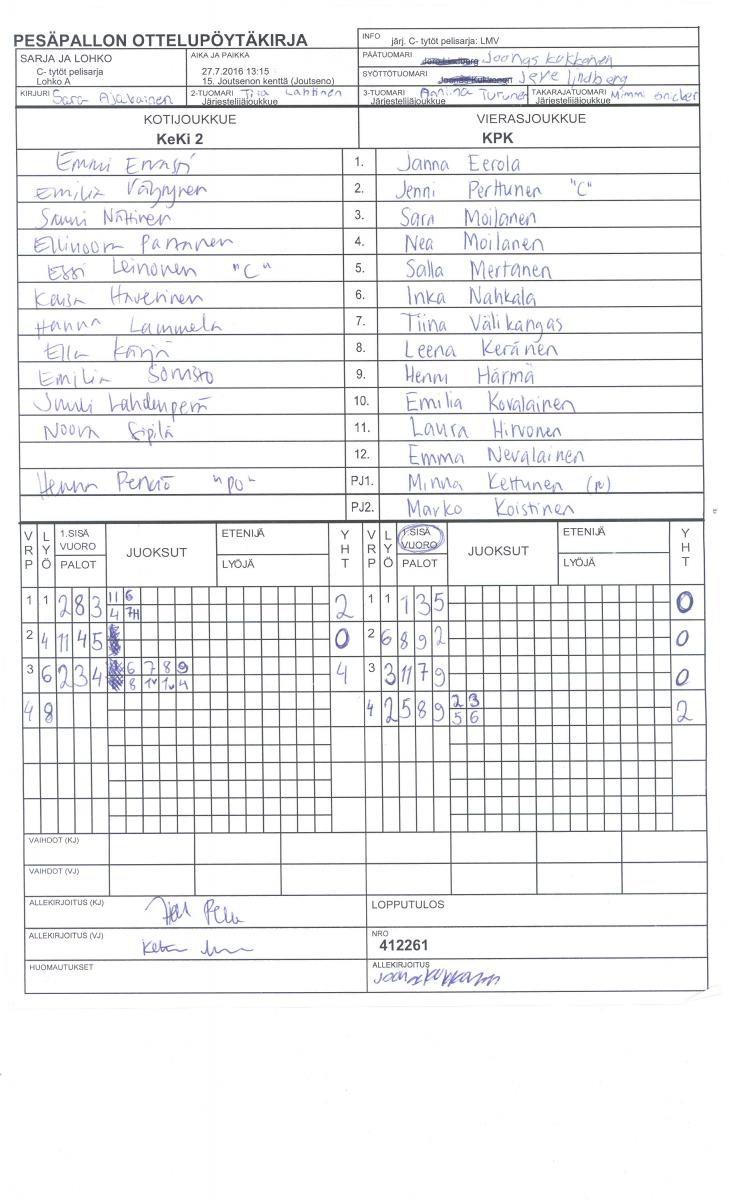 PESÄPALLON OTTELUPÖYTÄKIRJA
INFO järj. C- tytöt pelisarja: LMV
SARJA JA LOHKO
C- tytöt pelisarja
Lohko A
AIKA JA PAIKKA
27.7.2016 13:15
15. Joutsenon kenttä (Joutseno)
PÄÄTUOMARI Joonas Kukkonen
SYÖTTÖTUOMARI Jere Lindberg
KIRJURI Sara Ajakainen
2-TUOMARI Tiia Lahtinen
Järjestelijäjoukkue
3-TUOMARI Anniina Turunen
Järjestelijäjoukkue
TAKARAJATUOMARI Mimmi
Järjestelijäjoukkue
KOTIJOUKKUE
KeKi 2
VIERASJOUKKUE
KPK
Emmi 1. Janna Eerola
Emilia Väyrynen 2. Jenni Perttunen "C"
Sanni Nättinen 3. Sara Moilanen
Ellinoora Parannen 4. Nea Moilanen
Essi Leinonen "C" 5. Salla Mertanen
Kaisa Haverinen 6. Inka Nahkala
Hanna Lammela 7. Tiina Välikangas
Ella Karja 8. Leena Keränen
Emilia 9. Henni Härmä
Lahdenperä 10. Emilia Kovalainen
Noora Sipilä 11. Laura Hirvonen
12. Emma Nevalainen
"PO" PJ1. Minna Kettunen
PJ2. Marko Koistinen
VRP LYÖ 1.SISÄ VUORO PALOT JUOKSUT ETENIJÄ LYÖJÄ YHT VRP LYÖ 1.SISÄ VUORO PALOT JUOKSUT ETENIJÄ LYÖJÄ YHT
1 1 2 8 3 11 6 2 1 1 1 3 5 0
4 7H
2 4 11 4 5 0 2 6 8 9 2 0
3 6 2 3 4 6 7 8 9 4 3 3 11 7 9 0
4 8 4 2 5 8 9 2 3 2
5 6
VAIHDOT (KJ)
VAIHDOT (VJ)
ALLEKIRJOITUS (KJ)
LOPPUTULOS
ALLEKIRJOITUS (VJ)
NRO
412261
HUOMAUTUKSET
ALLEKIRJOITUS
Joonas Kukkonen